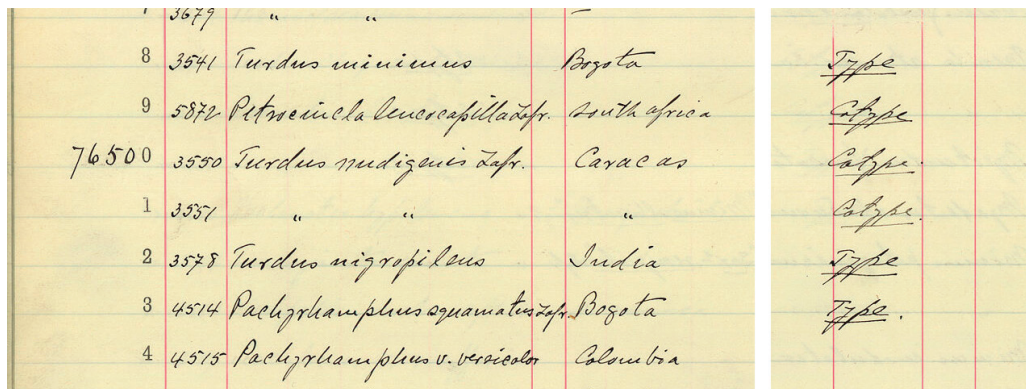 3679 " "
8 3541 Turdus minimus Bogota Type
9 5872 Petrocincla leucocapilla Lafr. South Africa Cotype
76500 3550 Turdus nudigenis Lafr. Caracas Cotype.
1 3551 " " " Cotype.
2 3578 Turdus nigropileus India Type
3 4514 Pachyrhamphus squamatus Lafr. Bogota Type.
4 4515 Pachyrhamphus v. versicolor Colombia